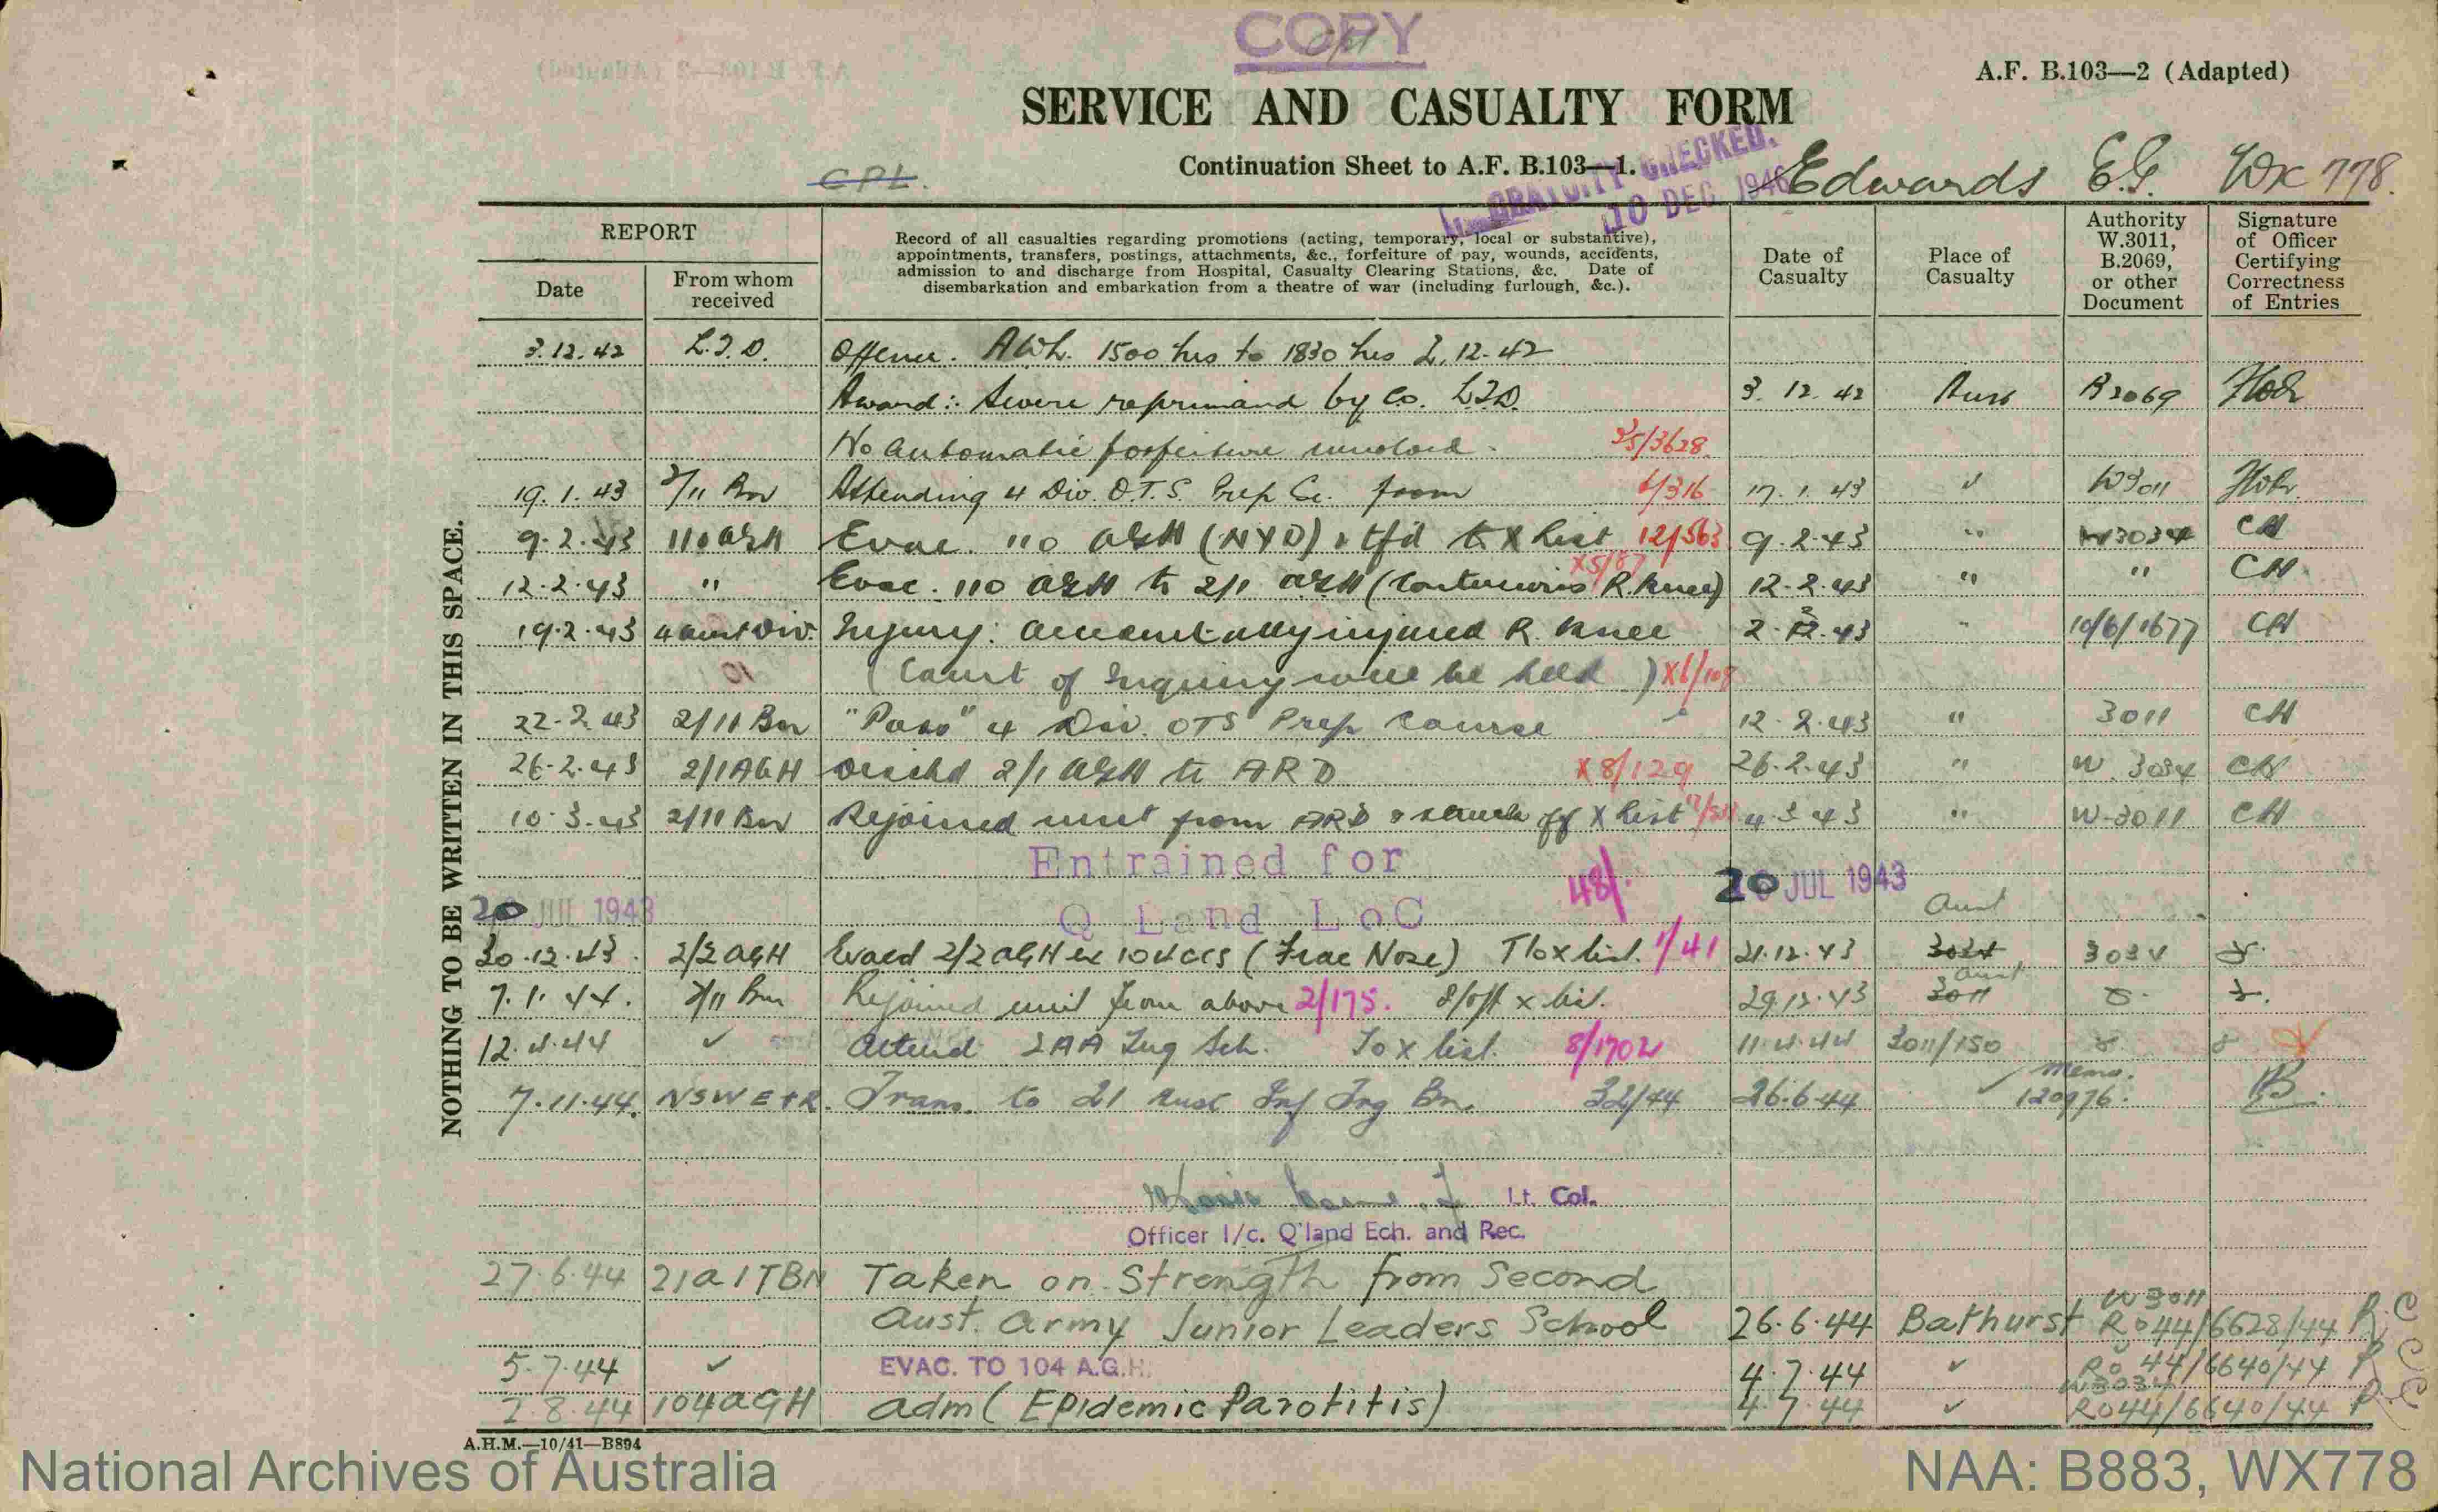 COPY
A.F. B.103—2 (Adapted)
SERVICE AND CASUALTY FORM
Continuation Sheet to A.F. B.103—1.
GRATUITY CHECKED.
10 DEC 1946
CPL.
Edwards E.G. WX 778.
REPORT
Date
From whom received
Record of all casualties regarding promotions (acting, temporary, local or substantive),
appointments, transfers, postings, attachments, &c., forfeiture of pay, wounds, accidents,
admission to and discharge from Hospital, Casualty Clearing Stations, &c. Date of
disembarkation and embarkation from a theatre of war (including furlough, &c.).
Date of Casualty
Place of Casualty
Authority W.3011, B.2069, or other Document
Signature of Officer Certifying Correctness of Entries
NOTHING TO BE WRITTEN IN THIS SPACE.
3.12.42 L.T.D. Offence. AWL. 1500 hrs to 1830 hrs 2.12.42
Award: Severe reprimand by Co. LTD. 3.12.42 Aust B2069
No automatic forfeiture involved. 35/3628
19.1.43 2/11 Bn Attending 4 Div. O.T.S. Prep Co. from 4/316 17.1.43 ✓ W3011
9.2.43 110 AGH Evac. 110 AGH (NYD) & tfd to X list 12/563 9.2.43 " W3034 CH
12.2.43 " Evac. 110 AGH to 2/1 AGH (Contusions R. Knee) X5/87 12.2.43 " " CH
19.2.43 4 Aust Div. Injury: accidentally injured R. Knee 2.2.43 " 10/6/1677 CH
(Court of Inquiry will be held) X6/108
22.2.43 2/11 Bn "Pass" 4 Div. OTS Prep Course 12.2.43 " 3011 CH
26.2.43 2/1 AGH Dischd 2/1 AGH to ARD X8/129 26.2.43 " W.3034 CH
10.3.43 2/11 Bn Rejoined unit from ARD & struck off X list 4.3.43 " W-3011 CH
Entrained for
20 JUL 1943 Q Land LoC 48/ 20 JUL 1943 Aust
30.12.43 2/2 AGH Evacd 2/2 AGH ex 104 CCS (Frac Nose) T to x list. 1/41 21.12.43 3034 3034
7.1.44. 2/11 Bn Rejoined unit from above 2/175. S/off x list. 29.12.43 3011 Aust
12.4.44 ✓ Attend LAA Trg Sch. To x list. 8/1702 11.4.44 3011/150
7.11.44. NSW E+R. Trans. to 21 Aust Inf Trg Bn. 32/44 26.6.44 ✓ Memo. 120976.
Lt. Col.
Officer I/c. Q'land Ech. and Rec.
27.6.44 21 A I T BN Taken on Strength from Second
Aust. Army Junior Leaders School 26.6.44 Bathurst W3011 RO44/6628/44 R.C
5.7.44 ✓ EVAC. TO 104 A.G.H. 4.7.44 ✓ RO 44/6640/44 RC
2.8.44 104 AGH adm (Epidemic Parotitis) 4.7.44 ✓ W3034 RO44/6640/44 RC
A.H.M.—10/41—B894
National Archives of Australia
NAA: B883, WX778